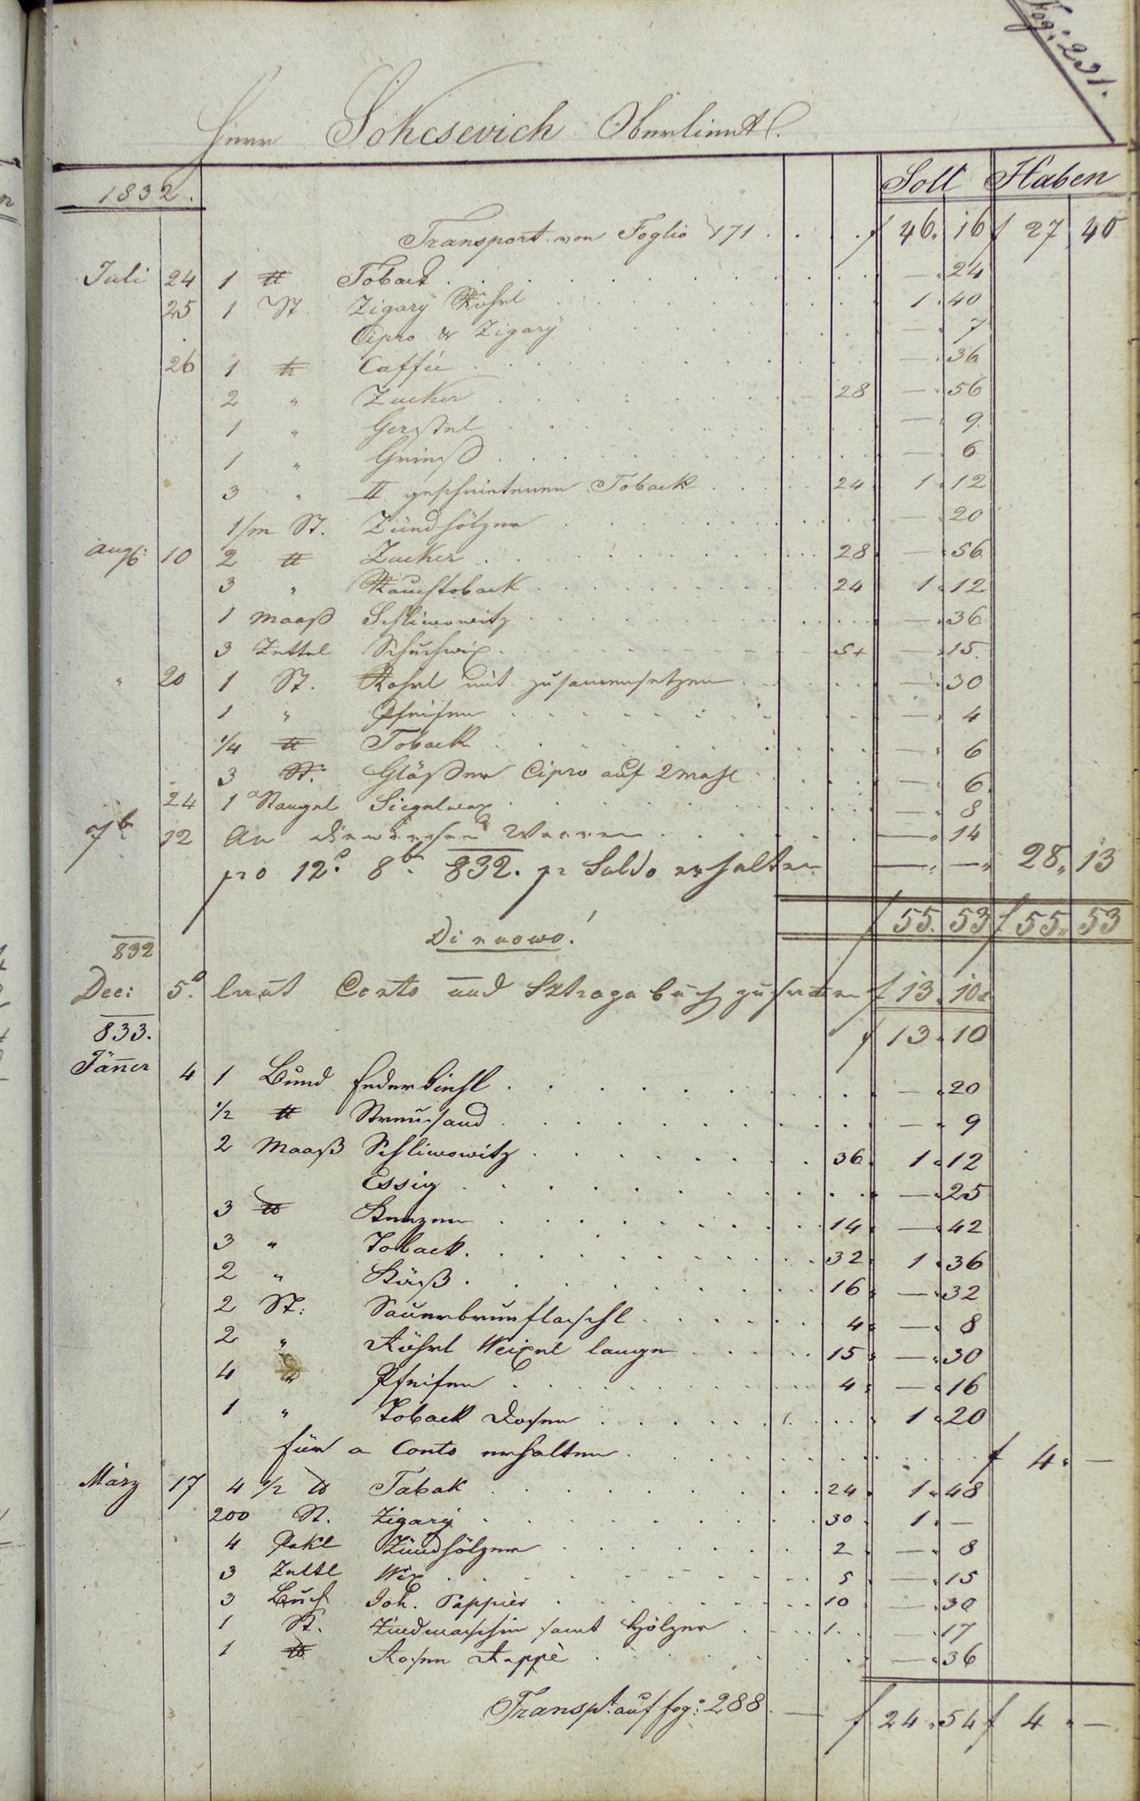 Fog: 231.
Herr Sokcsevich Oberlieut.
1832. Soll Haben
Transport von Foglio 171 . . . f 46. 16 f 27 40
Juli 24 1 ℔ Toback — 24
25 1 St. Zigary Röhrl 1 40
Cipro & Zigary — 7
26 1 ℔ Caffée — 36
2 " Zucker 28 — 56
1 " Gerstel — 9
1 " Grieß — 6
3 " II geschnitenen Toback 24 1 12
1/m St. Zündhölzer — 20
Augs: 10 2 ℔ Zucker 28 — 56
3 " Rauchtoback 24 1 12
1 Maaß Schliwowitz — 36
3 Zettel Schuhwix 5 — 15
" 20 1 St. Rohrl mit zusamensetzen — 30
1 " Pfeifen — 4
1/4 ℔ Toback — 6
3 St. Gläßer Cipro auf 2 mahl — 6
24 1 Stangel Siegelwax — 8
7br 12 An Waaren — 14
pro 12: 8br 832. pr Saldo erhalten — — 28 13
f 55. 53 f 55. 53
Dinuovo!
832
Dec: 5. laut Conto und Sztraga buch f 13. 10
833. f 13. 10
Jäner 4 1 Bund Federkiehl — 20
1/2 ℔ Streusand — 9
2 Maaß Schliwowitz 36 1 12
Essig — 25
3 ℔ Kerzen 14 — 42
3 " Toback 32 1 36
2 " Käß 16 — 32
2 St: Sauerbrunflaschl 4 — 8
2 " Röhrl Weixel lange 15 — 30
4 " Pfeifen 4 — 16
1 " Toback Dosen 1 20
für a Conto erhalten f 4 —
März 17 4 1/2 ℔ Tabak 24 1 48
200 St. Zigary 30 1 —
4 Pakl Zündhölzer 2 — 8
3 Zettl Wix 5 — 15
3 Buch Joh. Pappier 10 — 30
1 St. Zündmaschin samt Hölzer 1 — 17
1 ℔ Rosen Rappè — 36
Transpt. auf fog: 288 — f 24. 54 f 4 —